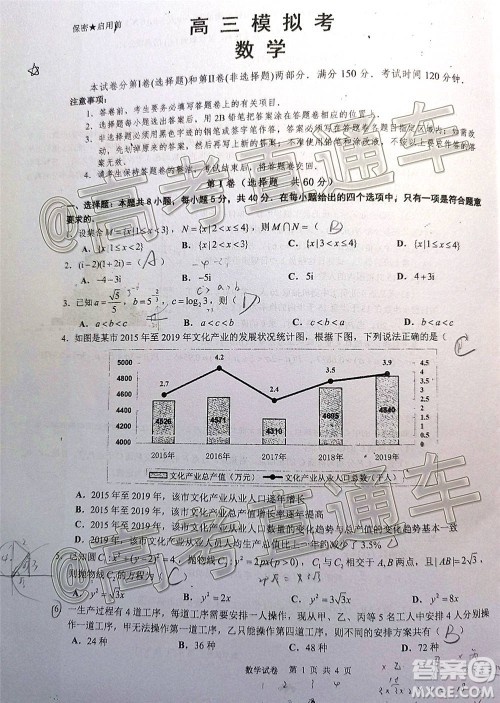 保密★启用前
高三模拟考
数学
本试卷分第Ⅰ卷(选择题)和第Ⅱ卷(非选择题)两部分．满分 150 分．考试时间 120 分钟．
注意事项：
1. 答卷前，考生要务必填写答题卷上的有关项目．
2. 选择题每小题选出答案后，用 2B 铅笔把答案涂在答题卷相应的位置上．
3. 非选择题必须用黑色字迹的钢笔或签字笔作答，
案无效．
4. 请考生保持答题卷的整洁．考试结束后，将答题卷交回．
第Ⅰ卷(选择题 共60分)
一、选择题：本题共8小题，每小题5分，共40分．在每小题给出的四个选项中，只有一项是符合题意
要求的．
1. 设集合M={x|1≤x<3}，N={x|2<x≤4}，则M∩N=( B )
A. {x|1≤x<2} B. {x|2<x<3} C. {x|3<x≤4} D. {x|1≤x≤4}
2. (i−2)(1+2i)=( A )
A. −4−3i B. −5i C. 5i D. 4+3i
3. 已知 c=log₅3，则( D )
A. a<b<c B. b<c<a C. c<b<a D. c<a<b
4. 如图是某市 2015 年至 2019 年文化产业的发展状况统计图，根据下图，下列说法正确的是( )
5000 4800 4600 4400 4200 4000
2.7 4.2 2.4 3.5 3.9
4526 4571 4310 4695 4840
4.5 4 3.5 3 2.5 2 1.5 1 0.5 0
2015年 2016年 2017年 2018年 2019年
文化产业总产值(万元) 文化产业从业人口总数(千人)
A. 2015 年至 2019 年，该市文化产业从业人口逐年增长
B. 2015 年至 2019 年，该市文化产业总产值增长率逐年提高
C. 2015 年至 2019 年，该市文化产业从业人口数量的变化趋势与总产值的变化趋势基本一致
5. 已知圆C₁:x²+(y−2)²=4，抛物线C₂:y²=2px(p>0)，C₁与C₂相交于A,B两点，且|AB|=2√3，
则抛物线C₂的方程为( C )
A. y²=√3x B. y²=3√3x C. y²=2√3x D. y²=8x
6. 一生产过程有4道工序，每道工序需要安排一人操作，现从甲、乙、丙等5名工人中安排4人分别操
作一道工序，则甲、乙只能操作第一、二道工序，则不同的安排方案共有( B )
A. 24 种 B. 36 种 C. 48 种 D. 72 种
数学试卷 第 1 页 共 4 页
@高考直通车
@高考直通车
答案圈
MXQE.COM